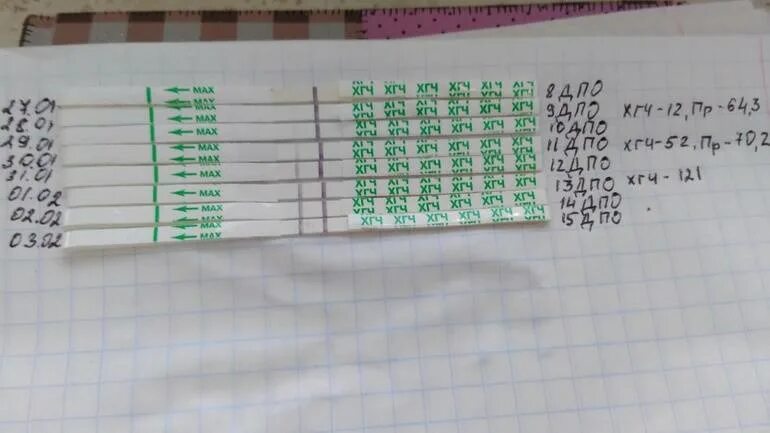 27.01 ← MAX ХГЧ ХГЧ ХГЧ ХГЧ ХГЧ ХГЧ 8 ДПО
28.01 ← MAX ХГЧ ХГЧ ХГЧ ХГЧ ХГЧ ХГЧ 9 ДПО ХГЧ-12, Пр-64,3
29.01 ← MAX ХГЧ ХГЧ ХГЧ ХГЧ ХГЧ ХГЧ 10 ДПО
30.01 ← MAX ХГЧ ХГЧ ХГЧ ХГЧ ХГЧ ХГЧ 11 ДПО ХГЧ-52, Пр-70,2
31.01 ← MAX ХГЧ ХГЧ ХГЧ ХГЧ ХГЧ ХГЧ 12 ДПО
01.02 ← MAX ХГЧ ХГЧ ХГЧ ХГЧ ХГЧ ХГЧ 13 ДПО ХГЧ-121
02.02 ← MAX ХГЧ ХГЧ ХГЧ ХГЧ ХГЧ ХГЧ 14 ДПО
03.02 ← MAX ХГЧ ХГЧ ХГЧ ХГЧ ХГЧ ХГЧ 15 ДПО